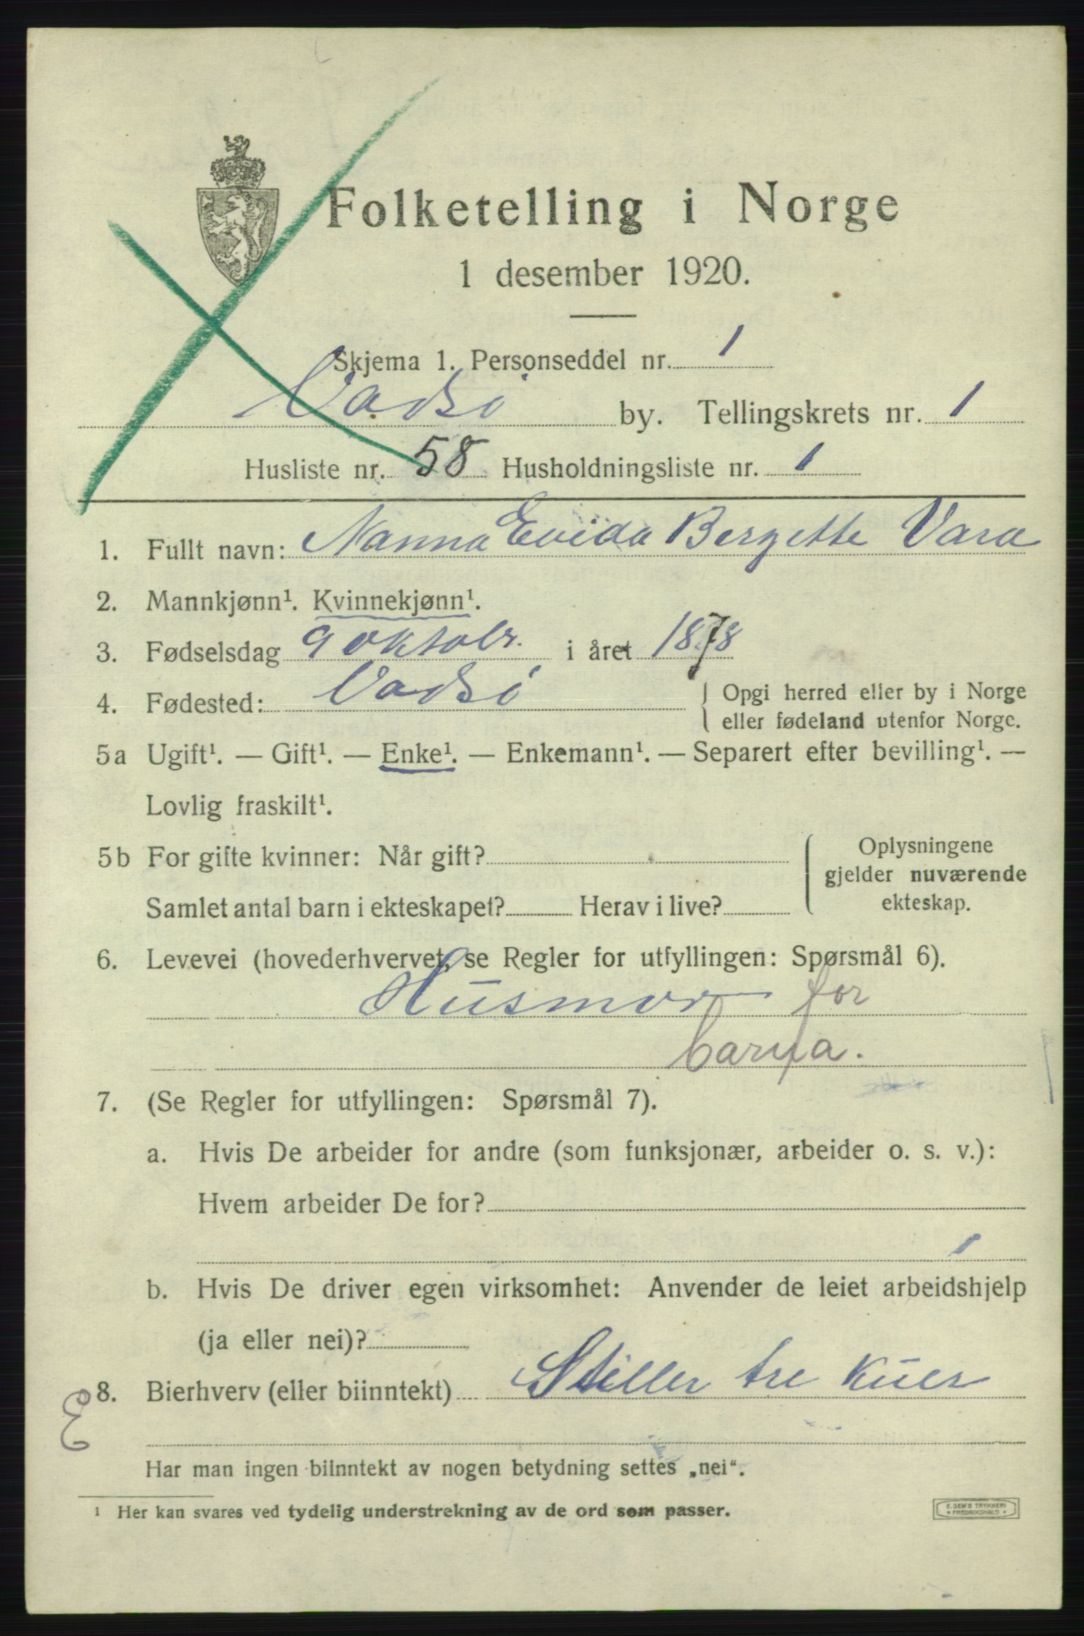 Folketelling i Norge
1 desember 1920.
Skjema 1. Personseddel nr. 1
Vadsö by. Tellingskrets nr. 1
Husliste nr. 58 Husholdningsliste nr. 1
1. Fullt navn: Nanna Evida Bergette Vara
2. Mannkjønn¹. Kvinnekjønn¹.
3. Fødselsdag 9 oktobr. i året 1878
4. Fødested: Vadsö
Opgi herred eller by i Norge
eller fødeland utenfor Norge.
5a Ugift¹. — Gift¹. — Enke¹. — Enkemann¹. — Separert efter bevilling¹. —
Lovlig fraskilt¹.
5b For gifte kvinner: Når gift?
Samlet antal barn i ekteskapet? Herav i live?
Oplysningene
gjelder nuværende
ekteskap.
6. Levevei (hovederhvervet, se Regler for utfyllingen: Spørsmål 6).
Husmor for
barna.
7. (Se Regler for utfyllingen: Spørsmål 7).
a. Hvis De arbeider for andre (som funksjonær, arbeider o. s. v.):
Hvem arbeider De for?
1
b. Hvis De driver egen virksomhet: Anvender de leiet arbeidshjelp
(ja eller nei)?
8. Bierhverv (eller biinntekt) Stiller tre Küer
E
Har man ingen biinntekt av nogen betydning settes „nei“.
¹ Her kan svares ved tydelig understrekning av de ord som passer.